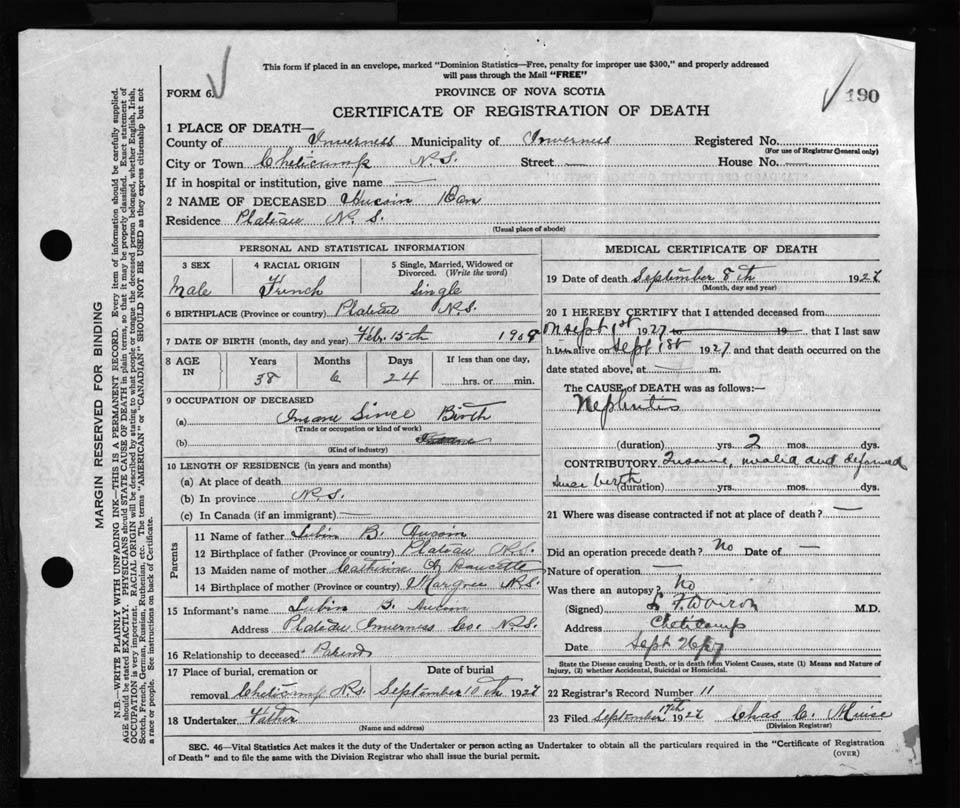 This form if placed in an envelope, marked "Dominion Statistics—Free, penalty for improper use $300," and properly addressed
will pass through the Mail "FREE"
FORM 6.
PROVINCE OF NOVA SCOTIA
190
CERTIFICATE OF REGISTRATION OF DEATH
1 PLACE OF DEATH—
County of Inverness Municipality of Inverness Registered No.
(For use of Registrar General only)
City or Town Cheticamp N.S. Street — House No. —
If in hospital or institution, give name —
2 NAME OF DECEASED Aucoin Dan
Residence Plateau N. S.
(Usual place of abode)
PERSONAL AND STATISTICAL INFORMATION
3 SEX 4 RACIAL ORIGIN 5 Single, Married, Widowed or
Divorced. (Write the word)
Male French Single
6 BIRTHPLACE (Province or country) Plateau N.S.
7 DATE OF BIRTH (month, day and year) Feb. 15th
8 AGE IN Years Months Days If less than one day,
38 6 24 hrs. or min.
9 OCCUPATION OF DECEASED
(a) Insane Since Birth
(Trade or occupation or kind of work)
(b)
(Kind of industry)
10 LENGTH OF RESIDENCE (in years and months)
(a) At place of death
(b) In province N.S.
(c) In Canada (if an immigrant) —
Parents
11 Name of father Lubin B. Aucoin
12 Birthplace of father (Province or country) Plateau N.S.
13 Maiden name of mother Catherine
14 Birthplace of mother (Province or country) Margree N.S.
15 Informant's name Lubin B. Aucoin
Address Plateau Inverness Co. N.S.
16 Relationship to deceased
17 Place of burial, cremation or Date of burial
removal Cheticamp N.S. September 10th 1927
18 Undertaker Father
(Name and address)
MEDICAL CERTIFICATE OF DEATH
19 Date of death September 8th 1927
(Month, day and year)
20 I HEREBY CERTIFY that I attended deceased from
on Sept 1st 1927 to 19 , that I last saw
h im alive on Sept 1st 1927 and that death occurred on the
date stated above, at — m.
The CAUSE of DEATH was as follows:—
Nephritis
(duration) yrs. 2 mos. dys.
CONTRIBUTORY Insane, invalid and deformed
since birth (duration) yrs. mos. dys.
21 Where was disease contracted if not at place of death? —
Did an operation precede death? No Date of —
Nature of operation —
Was there an autopsy? No
(Signed) M.D.
Address Cheticamp
Date Sept 26
State the Disease causing Death, or in death from Violent Causes, state (1) Means and Nature of
Injury, and (2) whether Accidental, Suicidal or Homicidal.
22 Registrar's Record Number 11
23 Filed September 17th 1927 Chas C. Muise
(Division Registrar)
SEC. 46—Vital Statistics Act makes it the duty of the Undertaker or person acting as Undertaker to obtain all the particulars required in the "Certificate of Registration
of Death" and to file the same with the Division Registrar who shall issue the burial permit.
(OVER)
MARGIN RESERVED FOR BINDING
N.B.—WRITE PLAINLY WITH UNFADING INK—THIS IS A PERMANENT RECORD. Every item of information should be carefully supplied.
AGE should be stated EXACTLY. PHYSICIANS should STATE CAUSE OF DEATH in plain terms, so that it may be properly classified. Exact statement of
OCCUPATION is very important. RACIAL ORIGIN will be described by stating to what people or tongue the deceased person belonged, whether English, Irish,
Scotch, French, German, Russian, Ruthenian, etc. The terms "AMERICAN" or "CANADIAN" SHOULD NOT BE USED as they express citizenship but not
a race or people. See instructions on back of Certificate.